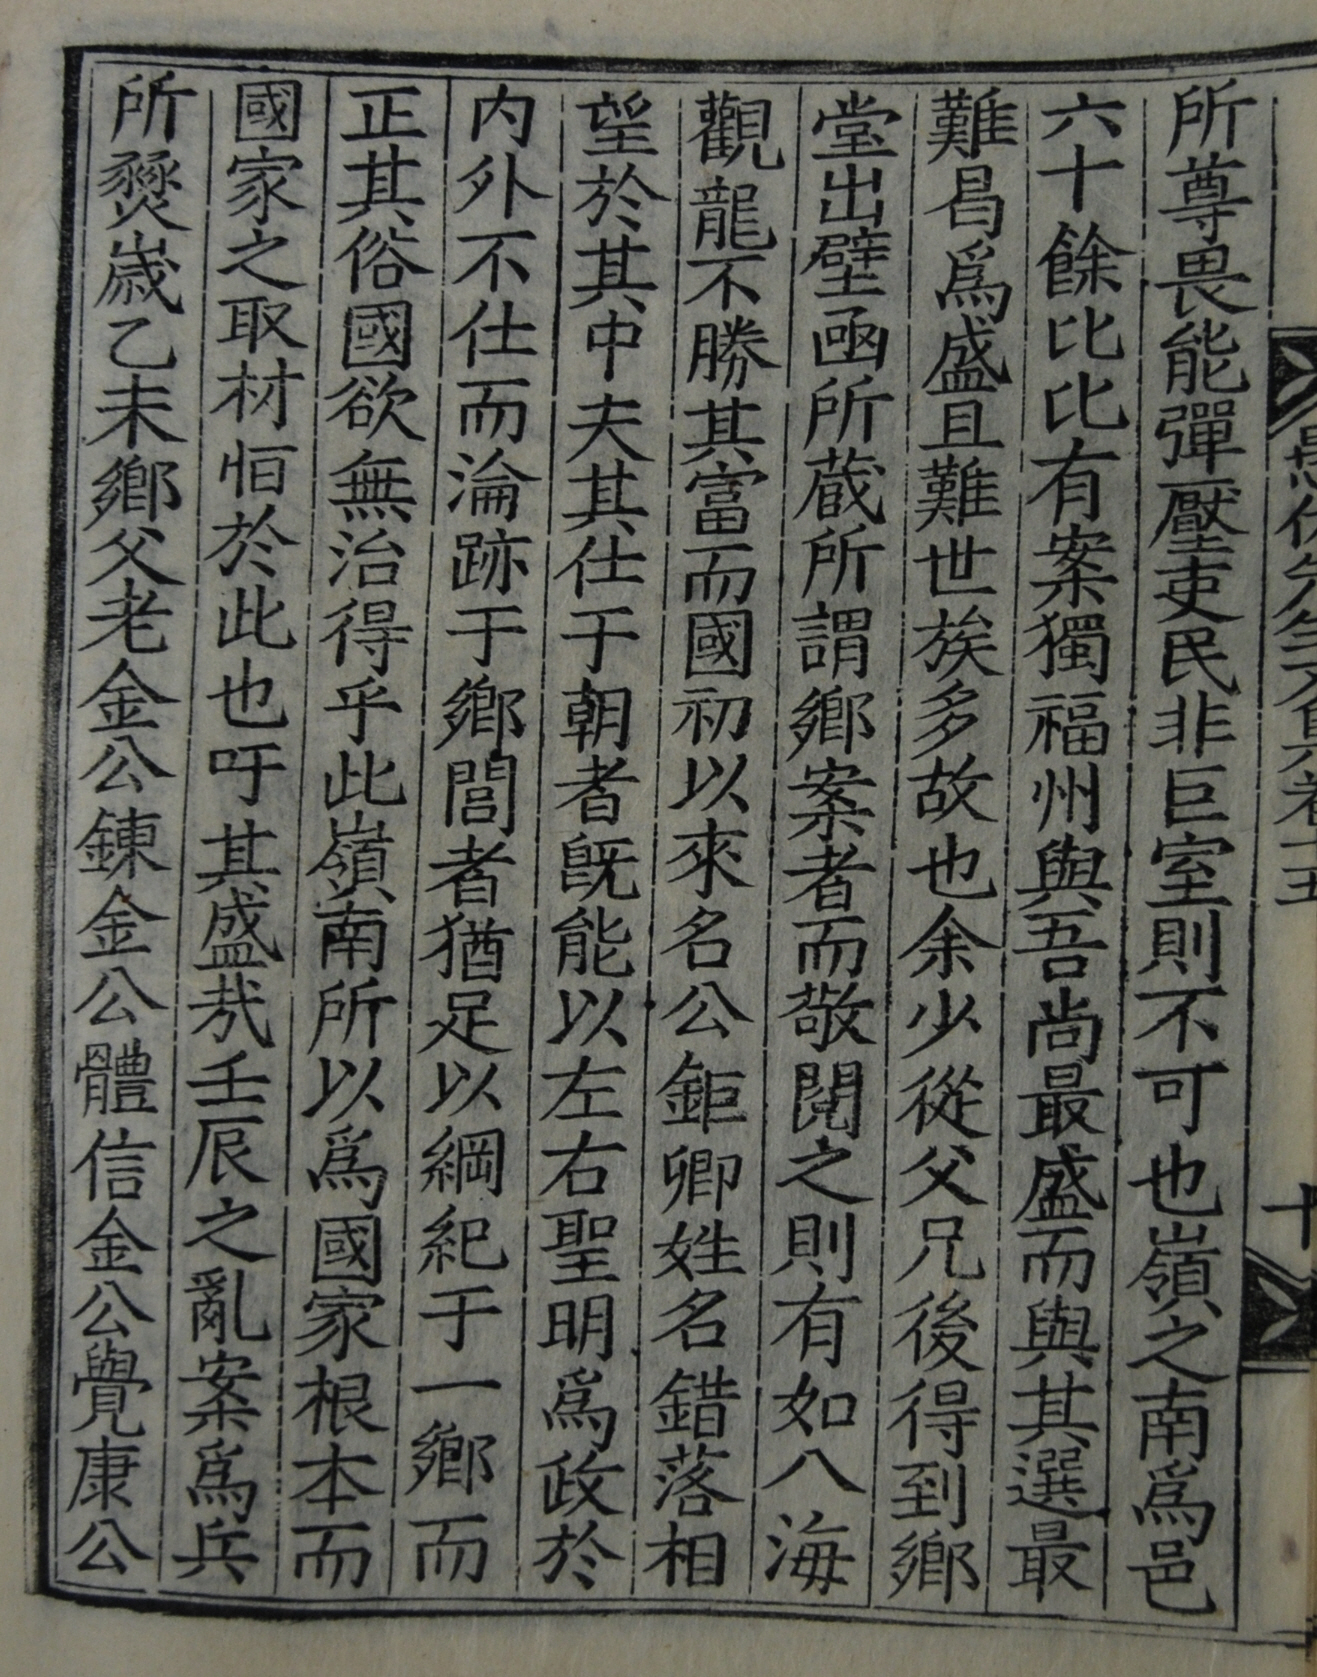 所尊畏能彈壓吏民非巨室則不可也嶺之南爲邑
六十餘比比有案獨福州與吾尚最盛而與其選最
難曷爲盛且難世族多故也余少從父兄後得到鄕
堂出壁凾所蔵所謂鄕案者而敬閱之則有如八海
觀龍不勝其富而國初以來名公鉅卿姓名錯落相
望於其中夫其仕于朝者旣能以左右聖明爲政於
内外不仕而淪跡于鄕閭者猶足以綱紀于一鄕而
正其俗國欲無治得乎此嶺南所以爲國家根本而
國家之取材恒於此也吁其盛㢤壬辰之亂案爲兵
所燹歲乙未鄕父老金公鍊金公體信金公覺康公
愚伏先生文集卷十五
十